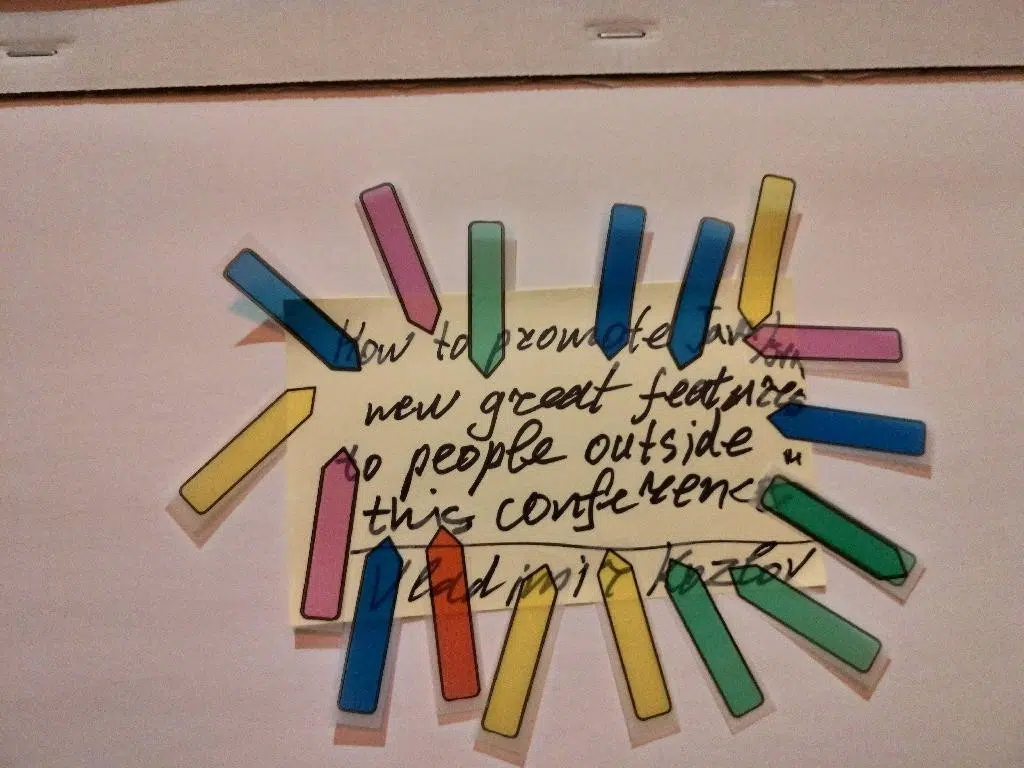 How to promote
new great features
to people outside
this conference"
Vladimir Kozlov